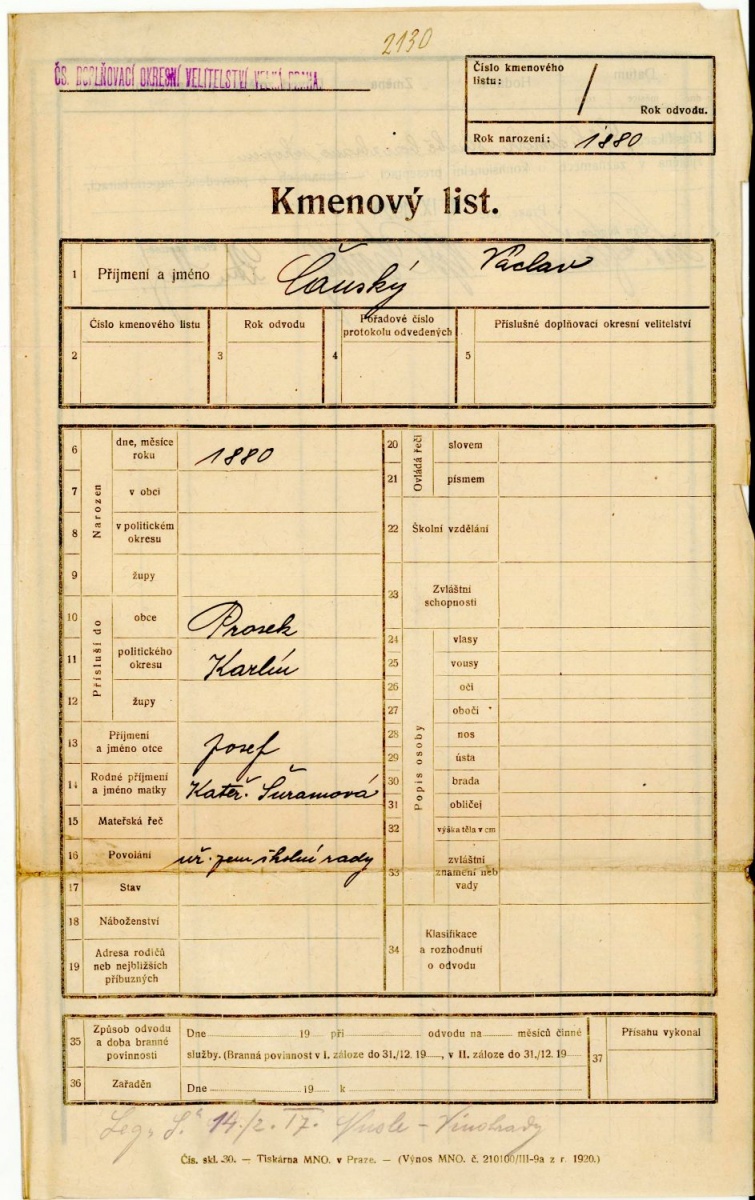 2130
ČS. DOPLŇOVACÍ OKRESNÍ VELITELSTVÍ VELKÁ PRAHA.
Číslo kmenového listu: /
Rok odvodu.
Rok narození: 1880
Kmenový list.
1 Příjmení a jméno Čánský Václav
2 Číslo kmenového listu
3 Rok odvodu
4 Pořadové číslo protokolu odvedených
5 Příslušné doplňovací okresní velitelství
Narozen
6 dne, měsíce roku 1880
7 v obci
8 v politickém okresu
9 župy
Přísluší do
10 obce Prosek
11 politického okresu Karlín
12 župy
13 Příjmení a jméno otce Josef
14 Rodné příjmení a jméno matky Kateř. Šuramová
15 Mateřská řeč
16 Povolání uř. zem. školní rady
17 Stav
18 Náboženství
19 Adresa rodičů neb nejbližších příbuzných
Ovládá řeči
20 slovem
21 písmem
22 Školní vzdělání
23 Zvláštní schopnosti
Popis osoby
24 vlasy
25 vousy
26 oči
27 obočí
28 nos
29 ústa
30 brada
31 obličej
32 výška těla v cm
33 zvláštní znamení neb vady
34 Klasifikace a rozhodnutí o odvodu
35 Způsob odvodu a doba branné povinnosti
Dne 19 při odvodu na měsíců činné
služby. (Branná povinnost v I. záloze do 31./12. 19 , v II. záloze do 31./12. 19
36 Zařaděn Dne 19 k
37 Přísahu vykonal
Leg. 14./2. IV. Nusle - Vinohrady
Čís. skl. 30. — Tiskárna MNO. v Praze. — (Výnos MNO. č. 210100/III-9a z r. 1920.)